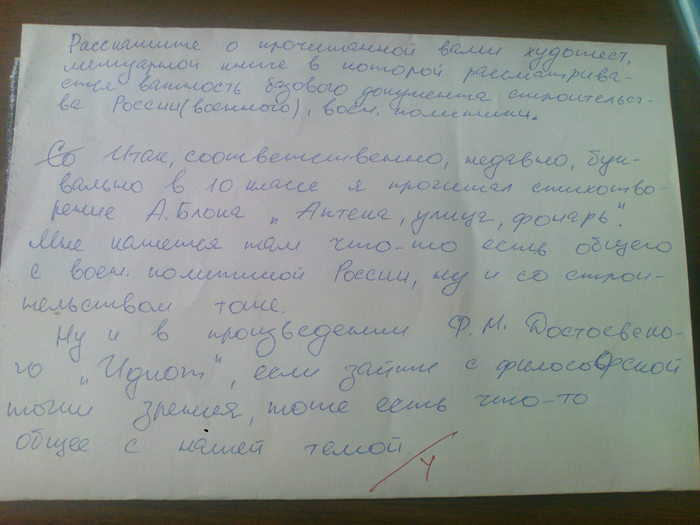 Расскажите о прочитанной вами художест,
мемуарной книге в которой рассматрива-
ется важность базового документа строительст-
ва России(военного), воен. политики.
Со Итак, соответственно, недавно, бук-
вально в 10 классе я прочитал стихотво-
рение А.Блока „Аптека, улица, фонарь".
Мне кажется там что-то есть общего
с воен. политикой России, ну и со строи-
тельством тоже.
Ну и в произведении Ф.М. Достоевско-
го „Идиот", если зайти с философской
точки зрения, тоже есть что-то
общее с нашей темой.
4